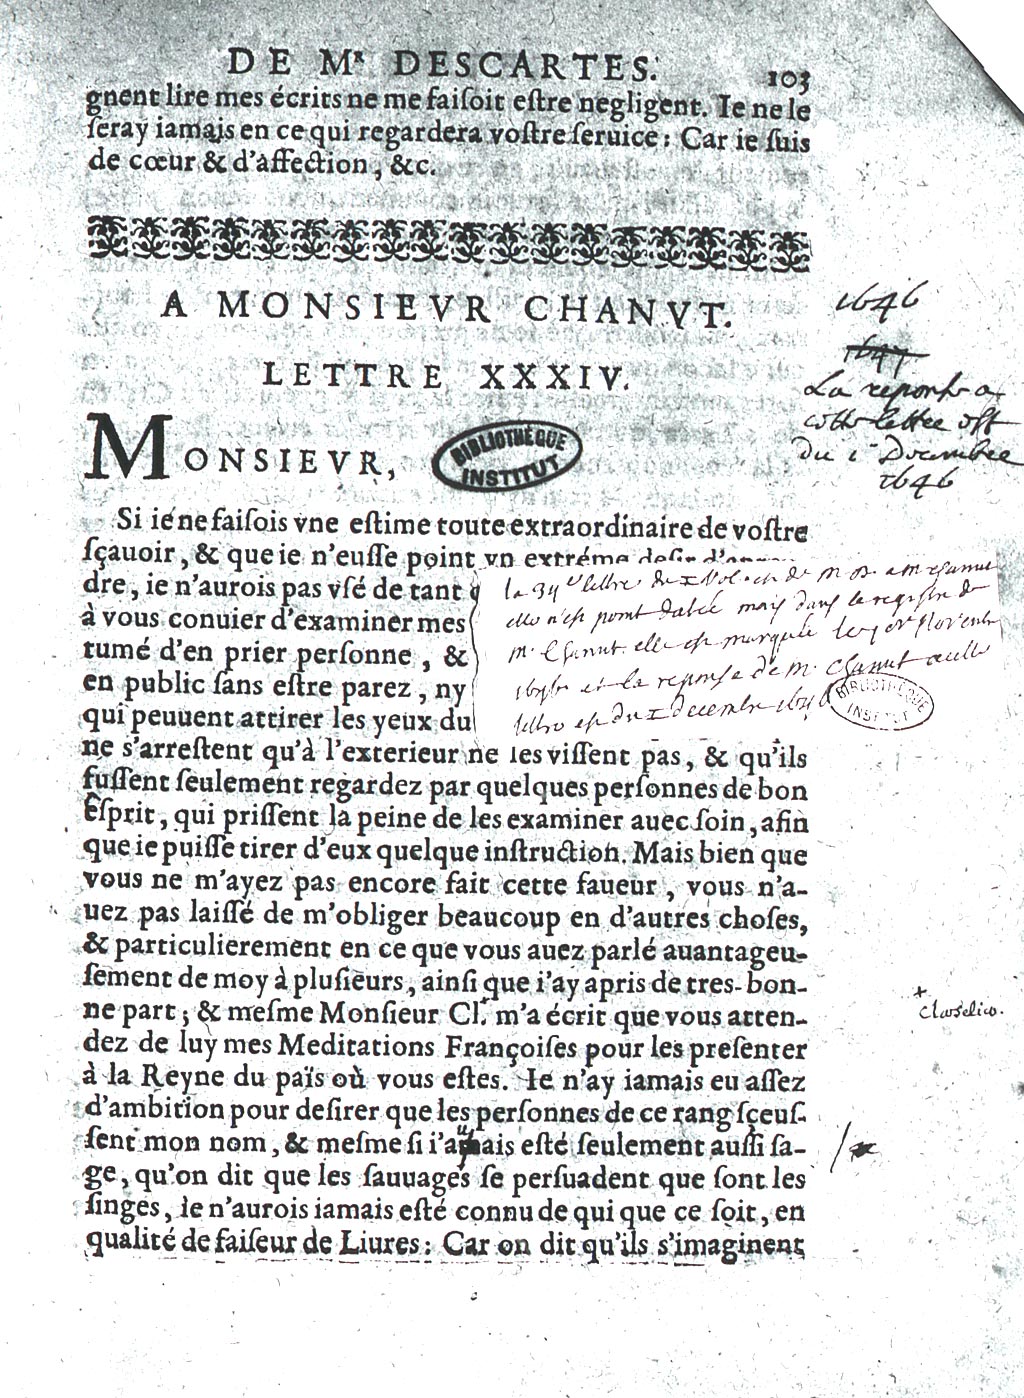 DE Mʳ DESCARTES. 103
gnent lire mes écrits ne me faiſoit eſtre negligent. Ie ne le
ſeray iamais en ce qui regardera voſtre ſeruice: Car ie ſuis
de cœur & d'affection, &c.
A MONSIEVR CHANVT.
LETTRE XXXIV.
MONSIEVR,
BIBLIOTHÈQUE
INSTITUT
1646
1647
La reponse a
cette lettre est
du 1ᵉ Decembre
1646
Si ie ne faiſois vne eſtime toute extraordinaire de voſtre
ſçauoir, & que ie n'euſſe point vn extréme deſir
dre, ie n'aurois pas vſé de tant
à vous conuier d'examiner mes
tumé d'en prier perſonne, &
en public ſans eſtre parez, ny
qui peuuent attirer les yeux du
la 34ᵉ lettre du I Vol. est de M. D. a M. Chanut
elle n'est point datée mais dans le registre de
M. Chanut elle est marquée le 1er Novembre
1646 et la reponse de M. Chanut a cette
lettre est du I decembre 1646
BIBLIOTHÈQUE
INSTITUT
ne s'arreſtent qu'à l'exterieur ne les viſſent pas, & qu'ils
fuſſent ſeulement regardez par quelques perſonnes de bon
eſprit, qui priſſent la peine de les examiner auec ſoin, afin
que ie puiſſe tirer d'eux quelque inſtruction. Mais bien que
vous ne m'ayez pas encore fait cette faueur, vous n'a-
uez pas laiſſé de m'obliger beaucoup en d'autres choſes,
& particulierement en ce que vous auez parlé auantageu-
ſement de moy à pluſieurs, ainſi que i'ay apris de tres-bon-
ne part; & meſme Monſieur Cl.⁺ m'a écrit que vous atten-
+
Clerselier.
dez de luy mes Meditations Françoiſes pour les preſenter
à la Reyne du païs où vous eſtes. Ie n'ay iamais eu aſſez
d'ambition pour deſirer que les perſonnes de ce rang ſçeuſ-
ſent mon nom, & meſme ſi i'auais eſté ſeulement auſſi ſa-
ge, qu'on dit que les ſauuages ſe perſuadent que ſont les
ſinges, ie n'aurois iamais eſté connu de qui que ce ſoit, en
qualité de faiſeur de Liures: Car on dit qu'ils s'imaginent